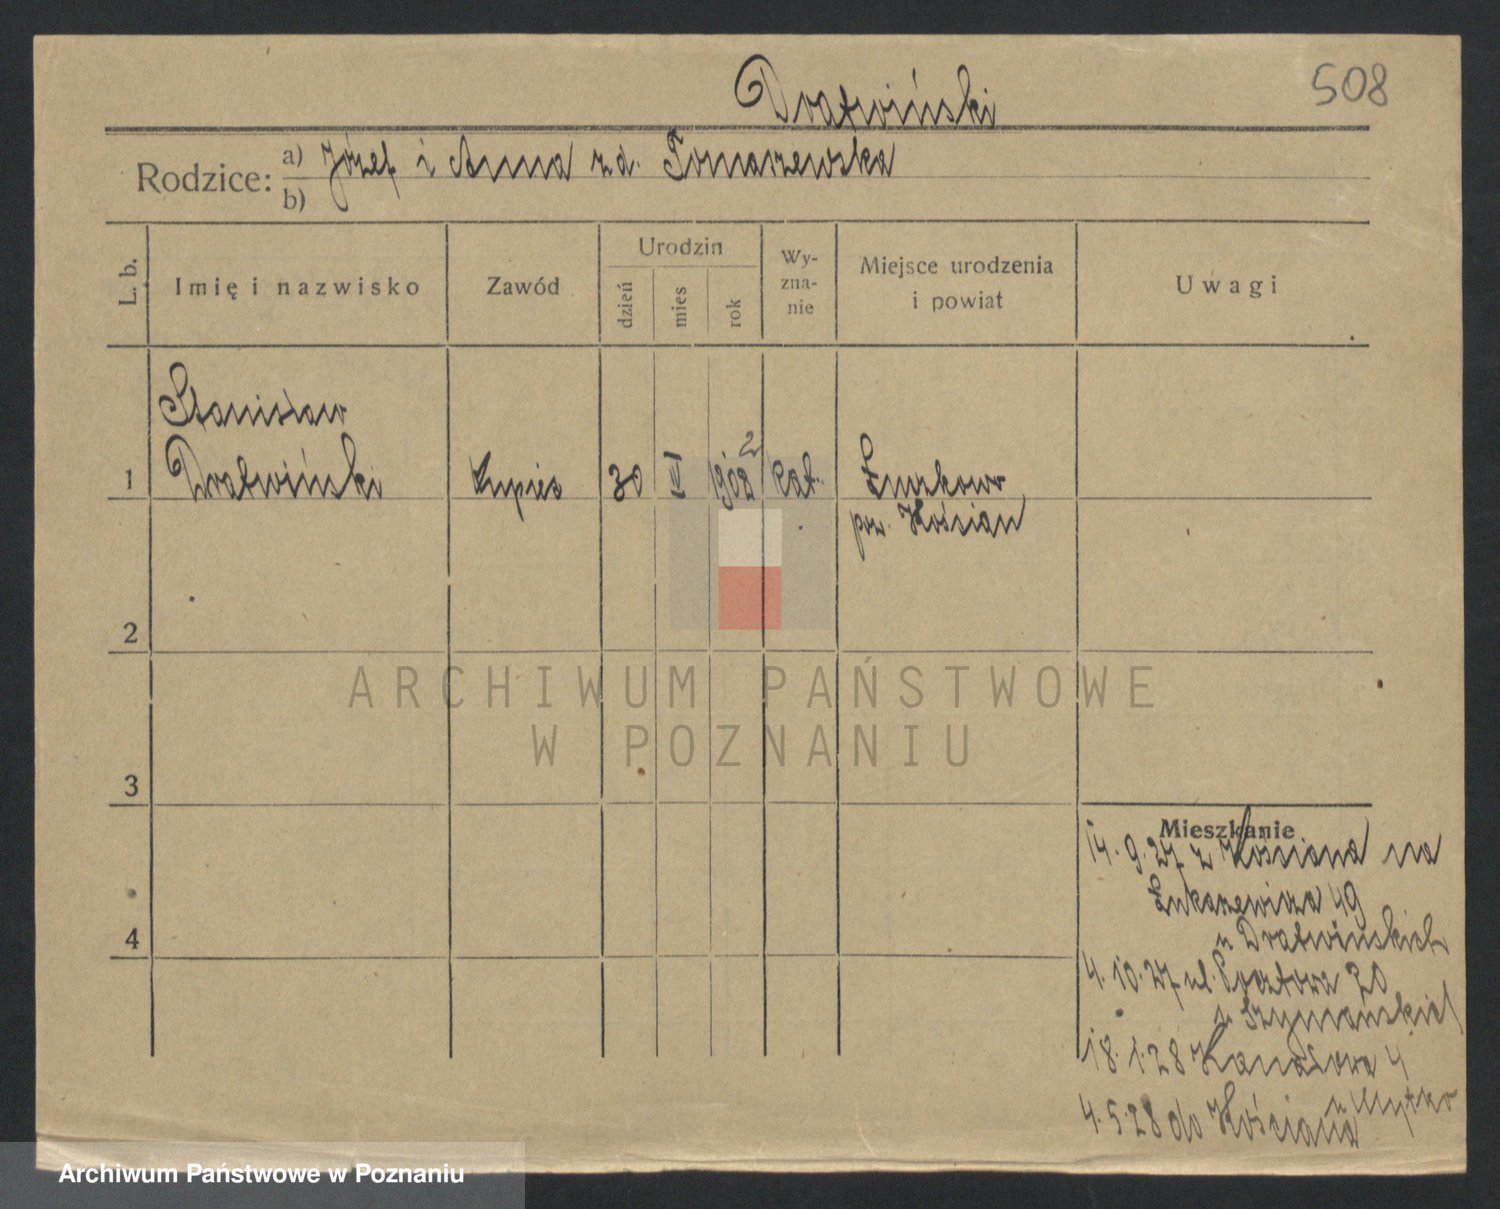 508
Dratwiński
Rodzice: a) Józef i Anna zd. Tomaszewska
b)
L. b.
Imię i nazwisko
Zawód
Urodzin
dzień
mies
rok
Wy-
zna-
nie
Miejsce urodzenia
i powiat
Uwagi
Stanisław
1 Dratwiński kupiec 30 1902 2 kat.
pow. Kościan
2
3
4
Mieszkanie
14.9.27 z Kościana na
Łukaszewicza 49
u Dratwińskich
4.10.27 ul. Pocztowa 20
u Szymańskich
18.1.28 Kanałowa 4
u
4.5.28 do Kościana
ARCHIWUM PAŃSTWOWE
W POZNANIU
Archiwum Państwowe w Poznaniu